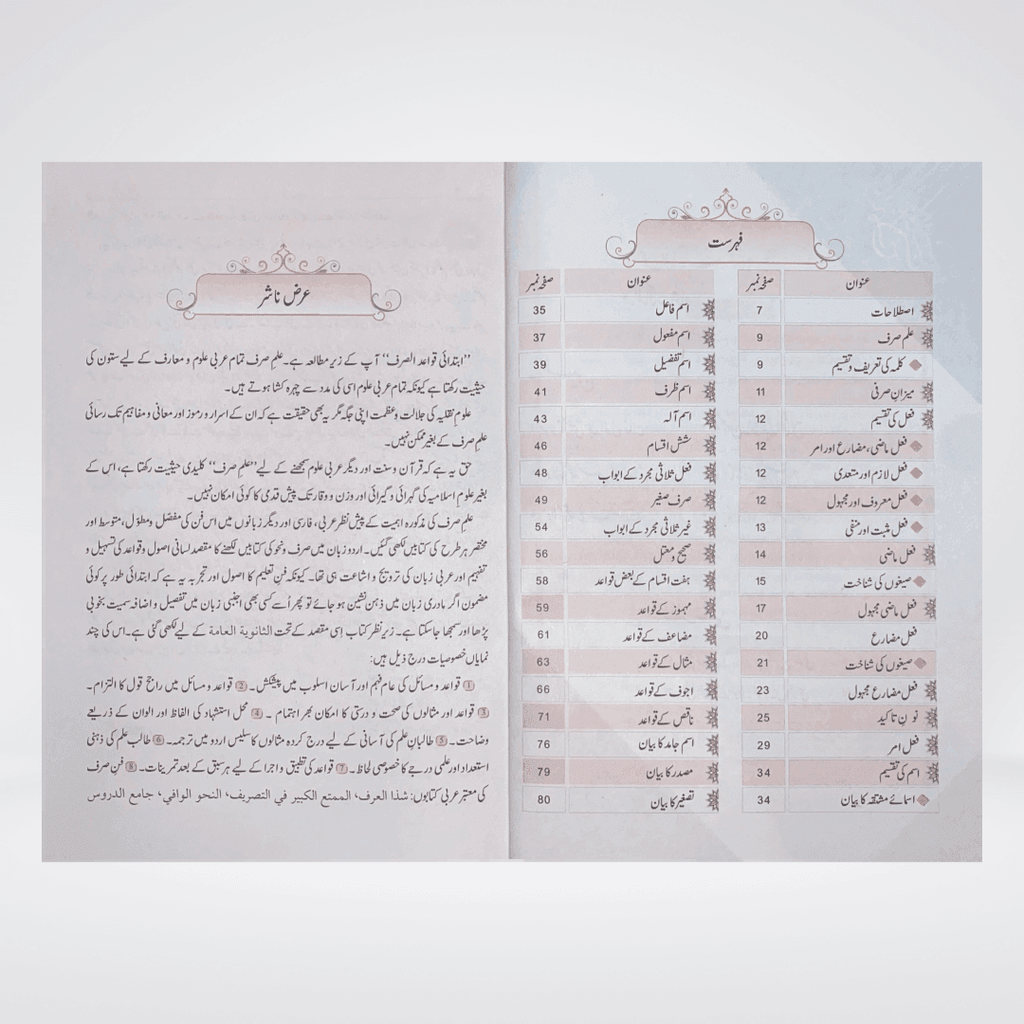 فہرست
عنوان صفحہ نمبر
اصطلاحات 7
علم صرف 9
کلمہ کی تعریف و تقسیم 9
میزانِ صرفی 11
فعل کی تقسیم 12
فعل ماضی، مضارع اور امر 12
فعل لازم اور متعدی 12
فعل معروف اور مجہول 12
فعل مثبت اور منفی 13
فعل ماضی 14
صیغوں کی شناخت 15
فعل ماضی مجہول 17
فعل مضارع 20
صیغوں کی شناخت 21
فعل مضارع مجہول 23
نونِ تاکید 25
فعل امر 29
اسم کی تقسیم 34
اسمائے مشتقہ کا بیان 34
عنوان صفحہ نمبر
اسم فاعل 35
اسم مفعول 37
اسم تفضیل 39
اسم ظرف 41
اسم آلہ 43
شش اقسام 46
فعل ثلاثی مجرد کے ابواب 48
صرف صغیر 49
غیر ثلاثی مجرد کے ابواب 54
صحیح و معتل 56
ہفت اقسام کے بعض قواعد 58
مہموز کے قواعد 59
مضاعف کے قواعد 61
مثال کے قواعد 63
اجوف کے قواعد 66
ناقص کے قواعد 71
اسم جامد کا بیان 76
مصدر کا بیان 79
تصغیر کا بیان 80
عرض ناشر
”ابتدائی قواعد الصرف“ آپ کے زیرِ مطالعہ ہے۔ علمِ صرف تمام عربی علوم و معارف کے لیے ستون کی
حیثیت رکھتا ہے کیونکہ تمام عربی علوم اسی کی مدد سے چہرہ کشا ہوتے ہیں۔
علومِ نقلیہ کی جلالت و عظمت اپنی جگہ مگر یہ بھی حقیقت ہے کہ ان کے اسرار و رموز اور معانی و مفاہیم تک رسائی
علمِ صرف کے بغیر ممکن نہیں۔
حق یہ ہے کہ قرآن و سنت اور دیگر عربی علوم سمجھنے کے لیے ”علم صرف“ کلیدی حیثیت رکھتا ہے، اس کے
بغیر علومِ اسلامیہ کی گہرائی و گیرائی اور وزن و وقار تک پیش قدمی کا کوئی امکان نہیں۔
علمِ صرف کی مذکورہ اہمیت کے پیش نظر عربی، فارسی اور دیگر زبانوں میں اس فن کی مفصل و مطوّل، متوسط اور
مختصر ہر طرح کی کتابیں لکھی گئیں۔ اردو زبان میں صرف و نحو کی کتابیں لکھنے کا مقصد لسانی اصول و قواعد کی تسہیل و
تفہیم اور عربی زبان کی ترویج و اشاعت ہی تھا۔ کیونکہ فنِ تعلیم کا اصول اور تجربہ یہ ہے کہ ابتدائی طور پر کوئی
مضمون اگر مادری زبان میں ذہن نشین ہو جائے تو پھر اُسے کسی بھی اجنبی زبان میں تفصیل و اضافہ سمیت بخوبی
پڑھا اور سمجھا جاسکتا ہے۔ زیرِ نظر کتاب اِسی مقصد کے تحت الثانویة العامة کے لیے لکھی گئی ہے۔ اس کی چند
نمایاں خصوصیات درج ذیل ہیں:
1 قواعد و مسائل کی عام فہم اور آسان اسلوب میں پیشکش۔ 2 قواعد و مسائل میں راجح قول کا التزام۔
3 قواعد اور مثالوں کی صحت و درستی کا امکان بھر اہتمام۔ 4 محلِ استشہاد کی الفاظ اور الوان کے ذریعے
وضاحت۔ 5 طالبانِ علم کی آسانی کے لیے درج کردہ مثالوں کا سلیس اردو میں ترجمہ۔ 6 طالب علم کی ذہنی
استعداد اور علمی درجے کا خصوصی لحاظ۔ 7 قواعد کی تطبیق و اجرا کے لیے ہر سبق کے بعد تمرینات۔ 8 فنِ صرف
کی معتبر عربی کتابوں: شذا العرف، الممتع الكبير في التصريف، النحو الوافي، جامع الدروس